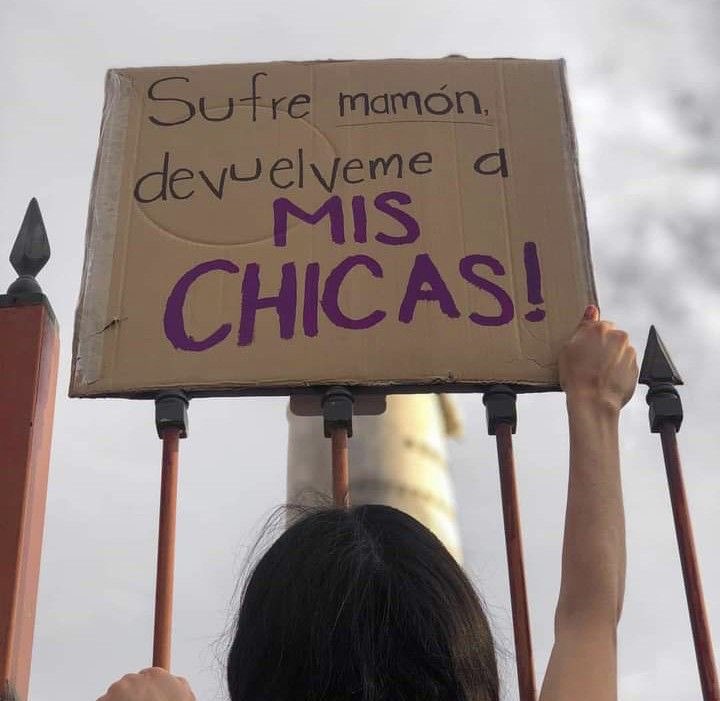 Sufre mamón,
devuelveme a
MIS
CHICAS!